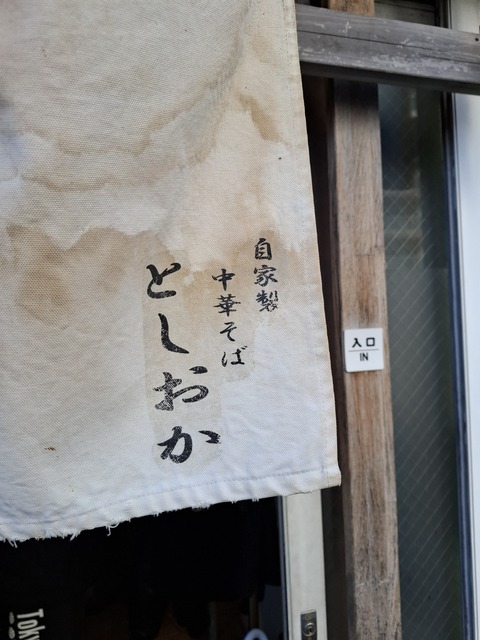 自家製
中華そば
としおか
入口
IN